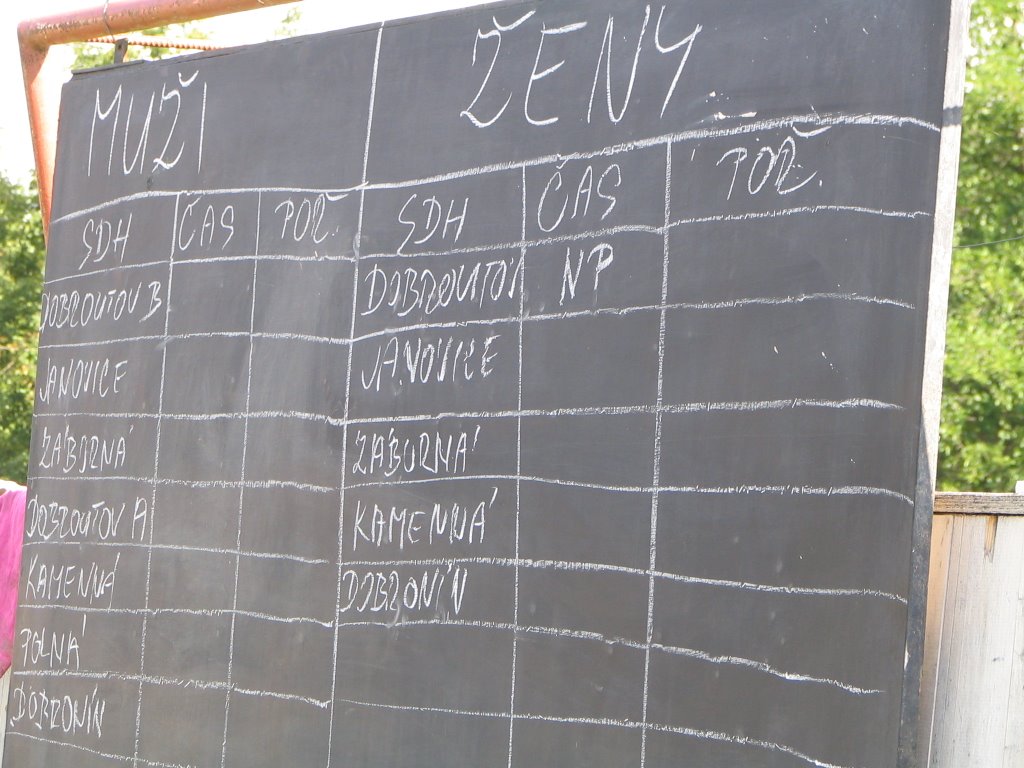 MUŽI ŽENY
SDH ČAS POŘ. SDH ČAS POŘ.
DOBROUTOV B DOBROUTOV NP
JANOVICE JANOVICE
ZÁBORNÁ ZÁBORNÁ
DOBROUTOV A KAMENNÁ
KAMENNÁ DOBRONÍN
POLNÁ
DOBRONÍN